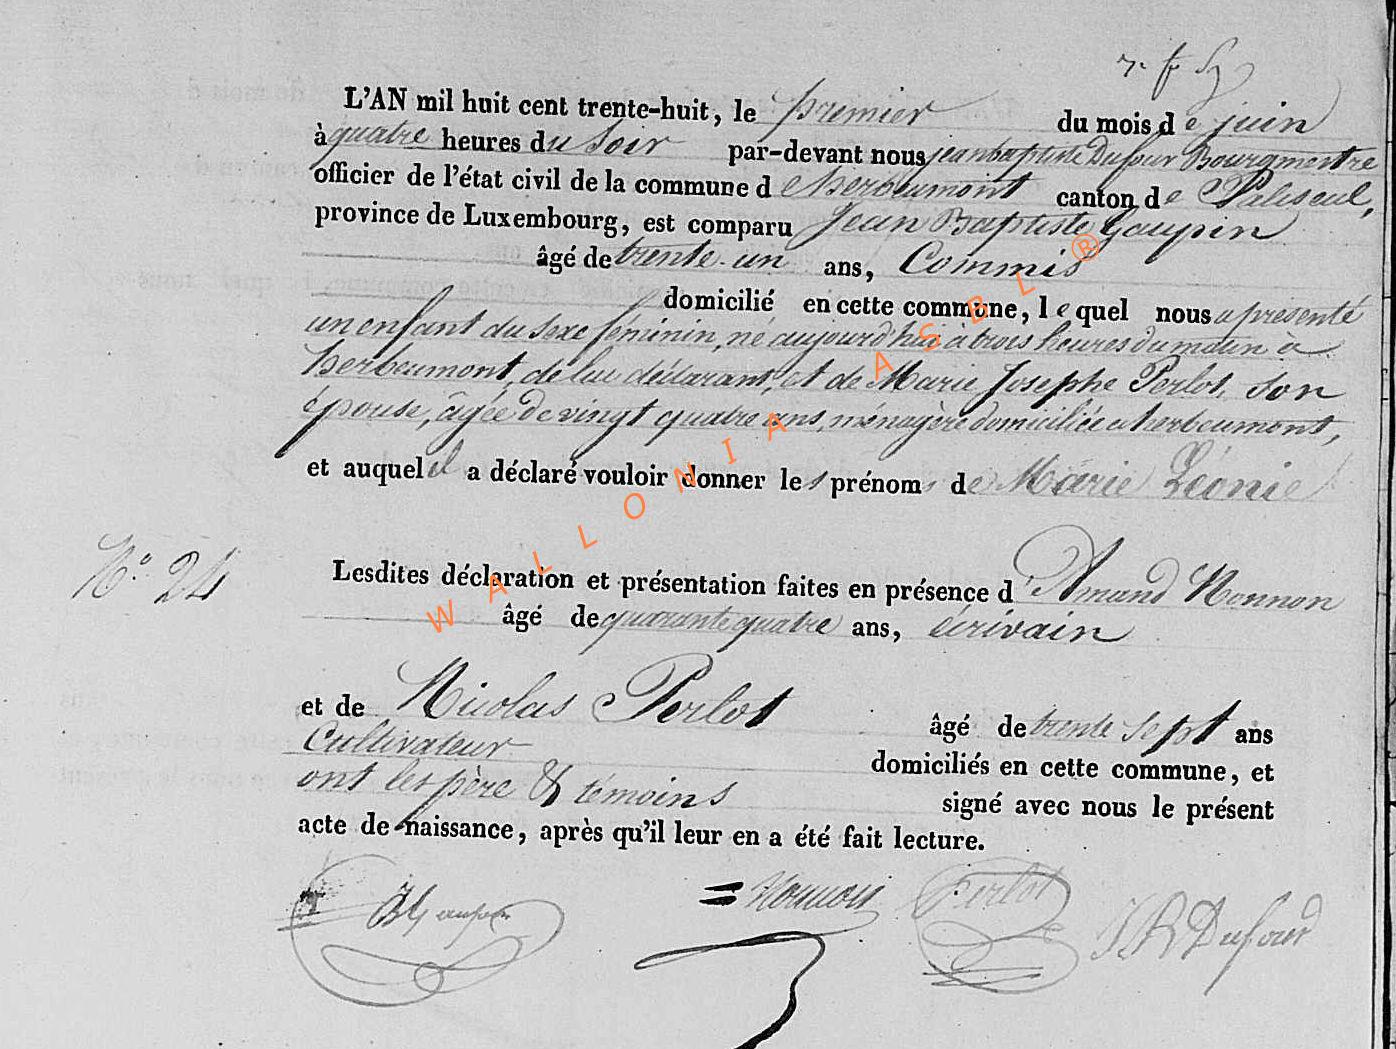 L'AN mil huit cent trente-huit, le premier du mois de juin
à quatre heures du soir par-devant nous jean baptiste Dufour Bourgmestre
officier de l'état civil de la commune d e herbeumont canton de Paliseul,
province de Luxembourg, est comparu Jean Baptiste Goupin
âgé de trente-un ans, Commis
domicilié en cette commune, lequel nous a présenté
un enfant du sexe féminin, né aujourd'hui à trois heures du matin a
herbeumont, de lui déclarant, et de Marie Josephe Perlot, son
épouse, âgée de vingt quatre ans, ménagère domiciliée a herbeumont,
et auquel il a déclaré vouloir donner les prénoms de Marie Léonie
N.º 24
Lesdites déclaration et présentation faites en présence d'Amand Nonnon
âgé de quarante quatre ans, écrivain
et de Nicolas Perlot âgé de trente sept ans
Cultivateur domiciliés en cette commune, et
ont les père & témoins signé avec nous le présent
acte de naissance, après qu'il leur en a été fait lecture.
Nonnon Perlot JB Dufour
WALLONIA ASBL ®